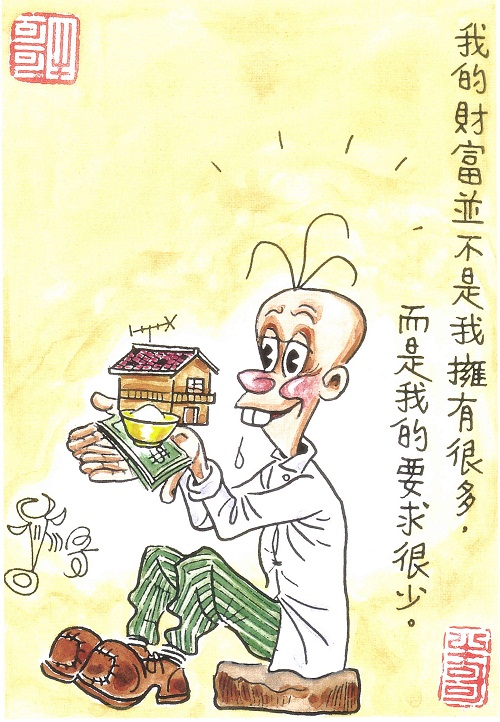 我的財富並不是我擁有很多，
而是我的要求很少。